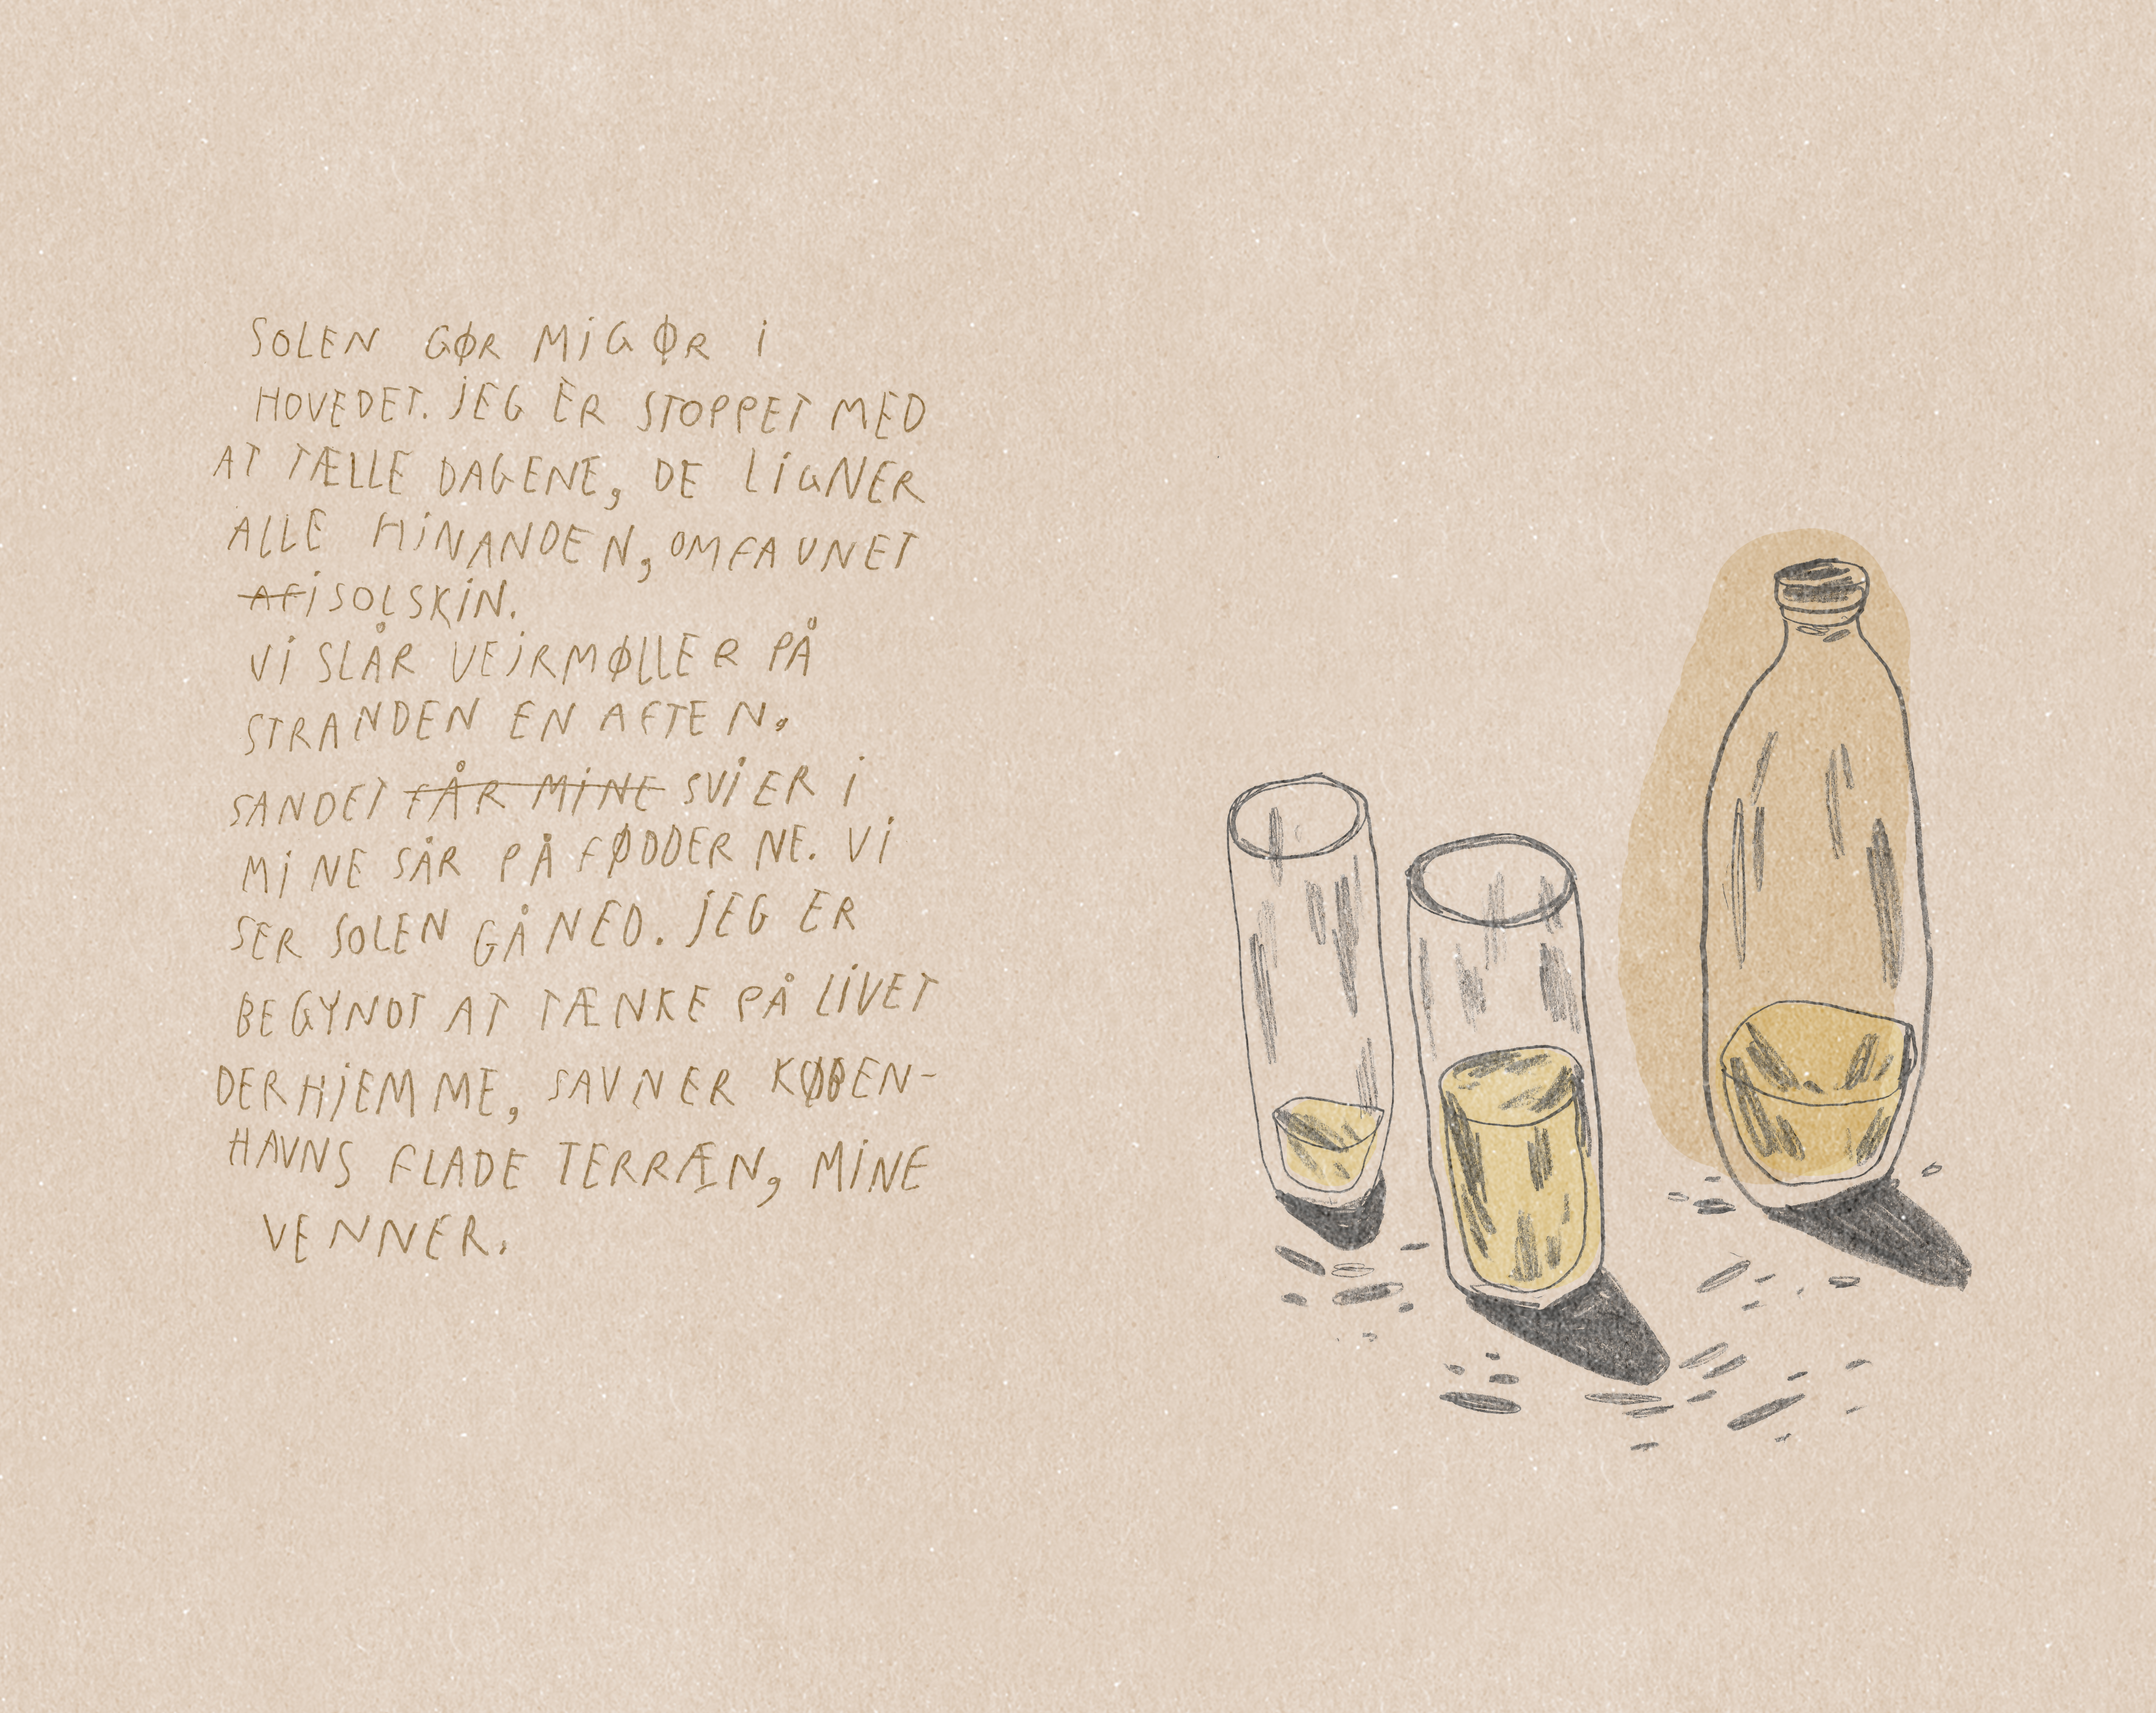 SOLEN GØR MIG ØR I
HOVEDET. JEG ER STOPPET MED
AT TÆLLE DAGENE, DE LIGNER
ALLE HINANDEN, OMFAVNET
AF I SOLSKIN.
VI SLÅR VEJRMØLLER PÅ
STRANDEN EN AFTEN.
SANDET FÅR MINE SVIER I
MINE SÅR PÅ FØDDERNE. VI
SER SOLEN GÅ NED. JEG ER
BEGYNDT AT TÆNKE PÅ LIVET
DERHJEMME, SAVNER KØBEN-
HAVNS FLADE TERRÆN, MINE
VENNER.